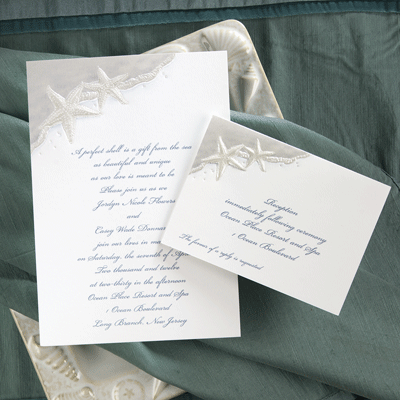 A perfect shell is a gift from the sea
as beautiful and unique
as our love is meant to be
Please join us as we
Jordyn Nicole Flowers
and
Casey Wade
join our lives in
on Saturday, the of April
Two thousand and twelve
at two-thirty in the afternoon
Ocean Place Resort and Spa
1 Ocean Boulevard
Long Branch, New Jersey
Reception
immediately following ceremony
Ocean Place Resort and Spa
1 Ocean Boulevard
The favour of a reply is requested